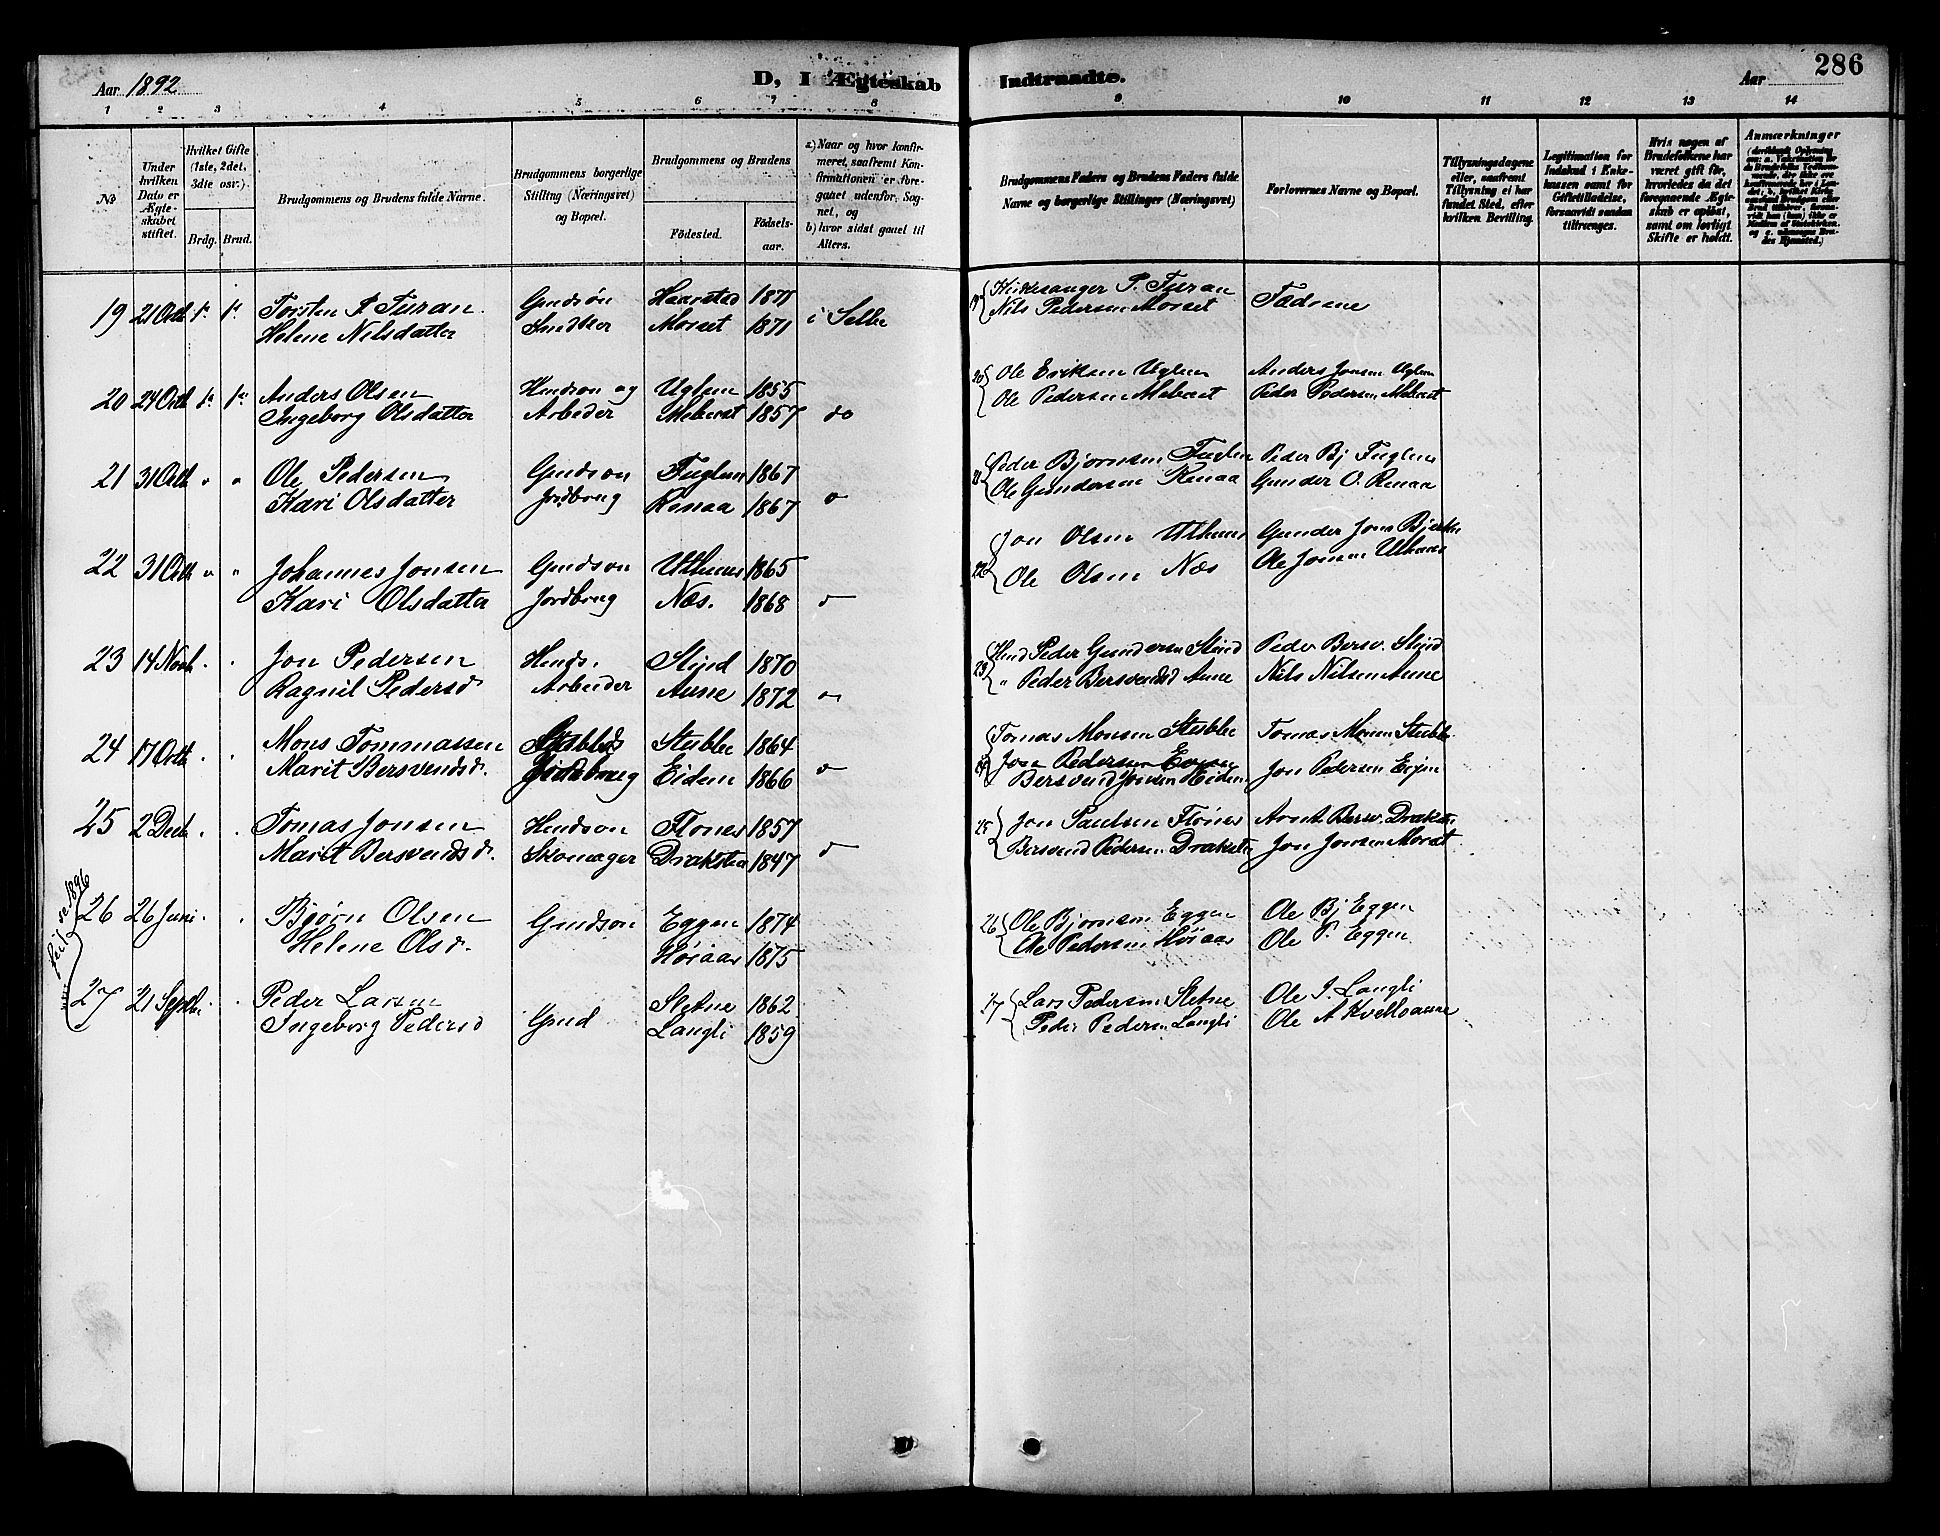 Aar 1892
D, I Ægteskab Indtraadte.
Aar
286
1 2 3 4 5 6 7 8 9 10 11 12 13 14
No
Under hvilken Dato er Ægteskabet stiftet.
Hvilket Gifte (1ste, 2det, 3die osv.).
Brdg. Brud.
Brudgommens og Brudens fulde Navne.
Brudgommens borgerlige Stilling (Næringsvei) og Bopæl.
Brudgommens og Brudens
Fødested.
Fødselsaar.
a) Naar og hvor konfirmeret, saafremt Konfirmationen er foregaaet udenfor Sognet, og
b) hvor sidst gaaet til Alters.
Brudgommens Faders og Brudens Faders fulde Navne og borgerlige Stillinger (Næringsvei)
Forlovernes Navne og Bopæl.
Tillysningsdagene eller, saafremt Tillysning ei har fundet Sted, efter hvilken Bevilling.
Legitimation for Indskud i Enkekassen samt for Giftetilladelse, forsaavidt saadan tiltrænges.
Hvis nogen af Brudefolkene har været gift før, hvorledes da det foregaaende Ægteskab er opløst, samt om lovligt Skifte er holdt.
Anmærkninger
19 21 Octb 1ste 1ste Torsten P. Furan Gmdsøn Haarstad 1871 i Selbu
Helene Nilsdatter Snedker Morset 1871
19 Kirkesanger P. Furan Fædrene
Nils Pedersen Morset
20 24 Octb Anders Olsen Husdson og Uglem 1855
Ingeborg Olsdatter Arbeider 1857 do
20 Ole Eriksen Uglem Anders Jonsen Uglem
Ole Pedersen Peder Pedersen
21 31 Octb " " Ole Pedersen Gmdson Fuglem 1867
Kari Olsdatter Jordbrug Renaa 1867 "
21 Peder Bjørnsen Fuglem Peder Bj Fuglem
Ole Gundersen Renaa Gunder O. Renaa
22 31 Octb " " Johannes Jonsen Gmdson Uthuus 1865
Kari Olsdatter Jordbrug Næs. 1868 "
22 Jon Olsen Uthuus Gunder Jons
Ole Olsen Næs Ole Jonsen Uthuus
23 14 Novb " " Jon Pedersen Husds. 1870
Ragnil Pedersd Arbeider Aune 1872 "
23 Husd Peder Gundersen Peder Bersv.
" Peder Bersvendsd Aune Nils Nilsen Aune
24 17 Octb " " Mons Tommassen Stubbe 1864
Marit Bersvendsd. Jordbrug Eidem 1866 "
24 Tomas Monsen Stubbe Tomas Monsen Stubbe
Jon Pedersen Evjen
Bersvend Jonsen Eidem Jon Pedersen Evjen
25 2 Decb " " Tomas Jonsen Husdson Flønes 1857
Marit Bersvendsd. Skomager Draksten 1847 "
25 Jon Paulsen Flønes Arnt Bersv. Drakste
Bersvend Pedersen Drakste Jon Jonsen Morset
feil se 1896
26 26 Juni " " Bjørn Olsen Gmdson Eggen 1874
Helene Olsd. Høiaas 1875
26 Ole Bjørnsen Eggen Ole Bj Eggen
Ole Pedersen Høiaas Ole P. Eggen
27 21 Septbr " Peder Larsen Gmd Sletne 1862
Ingeborg Pedersd Langli 1859
27 Lars Pedersen Sletne Ole J. Langli
Peder Pedersen Langli Ole A Kvelloaune